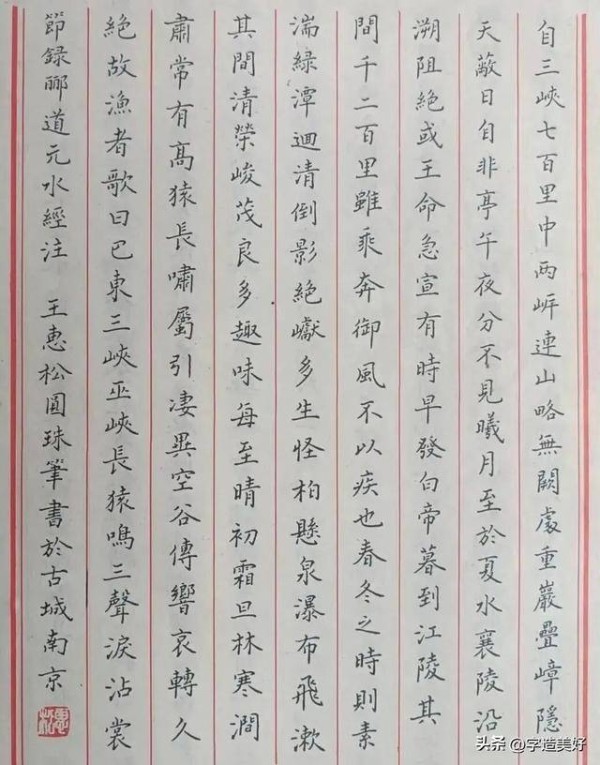 自三峽七百里中兩岸連山略無闕處重巖疊嶂隱
天蔽日自非亭午夜分不見曦月至於夏水襄陵沿
溯阻絕或王命急宣有時早發白帝暮到江陵其
間千二百里雖乘奔御風不以疾也春冬之時則素
湍綠潭迴清倒影絕巘多生怪柏懸泉瀑布飛漱
其間清榮峻茂良多趣味每至晴初霜旦林寒澗
肅常有髙猿長嘯屬引凄異空谷傳響哀轉久
絕故漁者歌曰巴東三峽巫峽長猿鳴三聲淚沾裳
節錄酈道元水經注 王惠松圓珠筆書於古城南京
惠松
头条 @字造美好